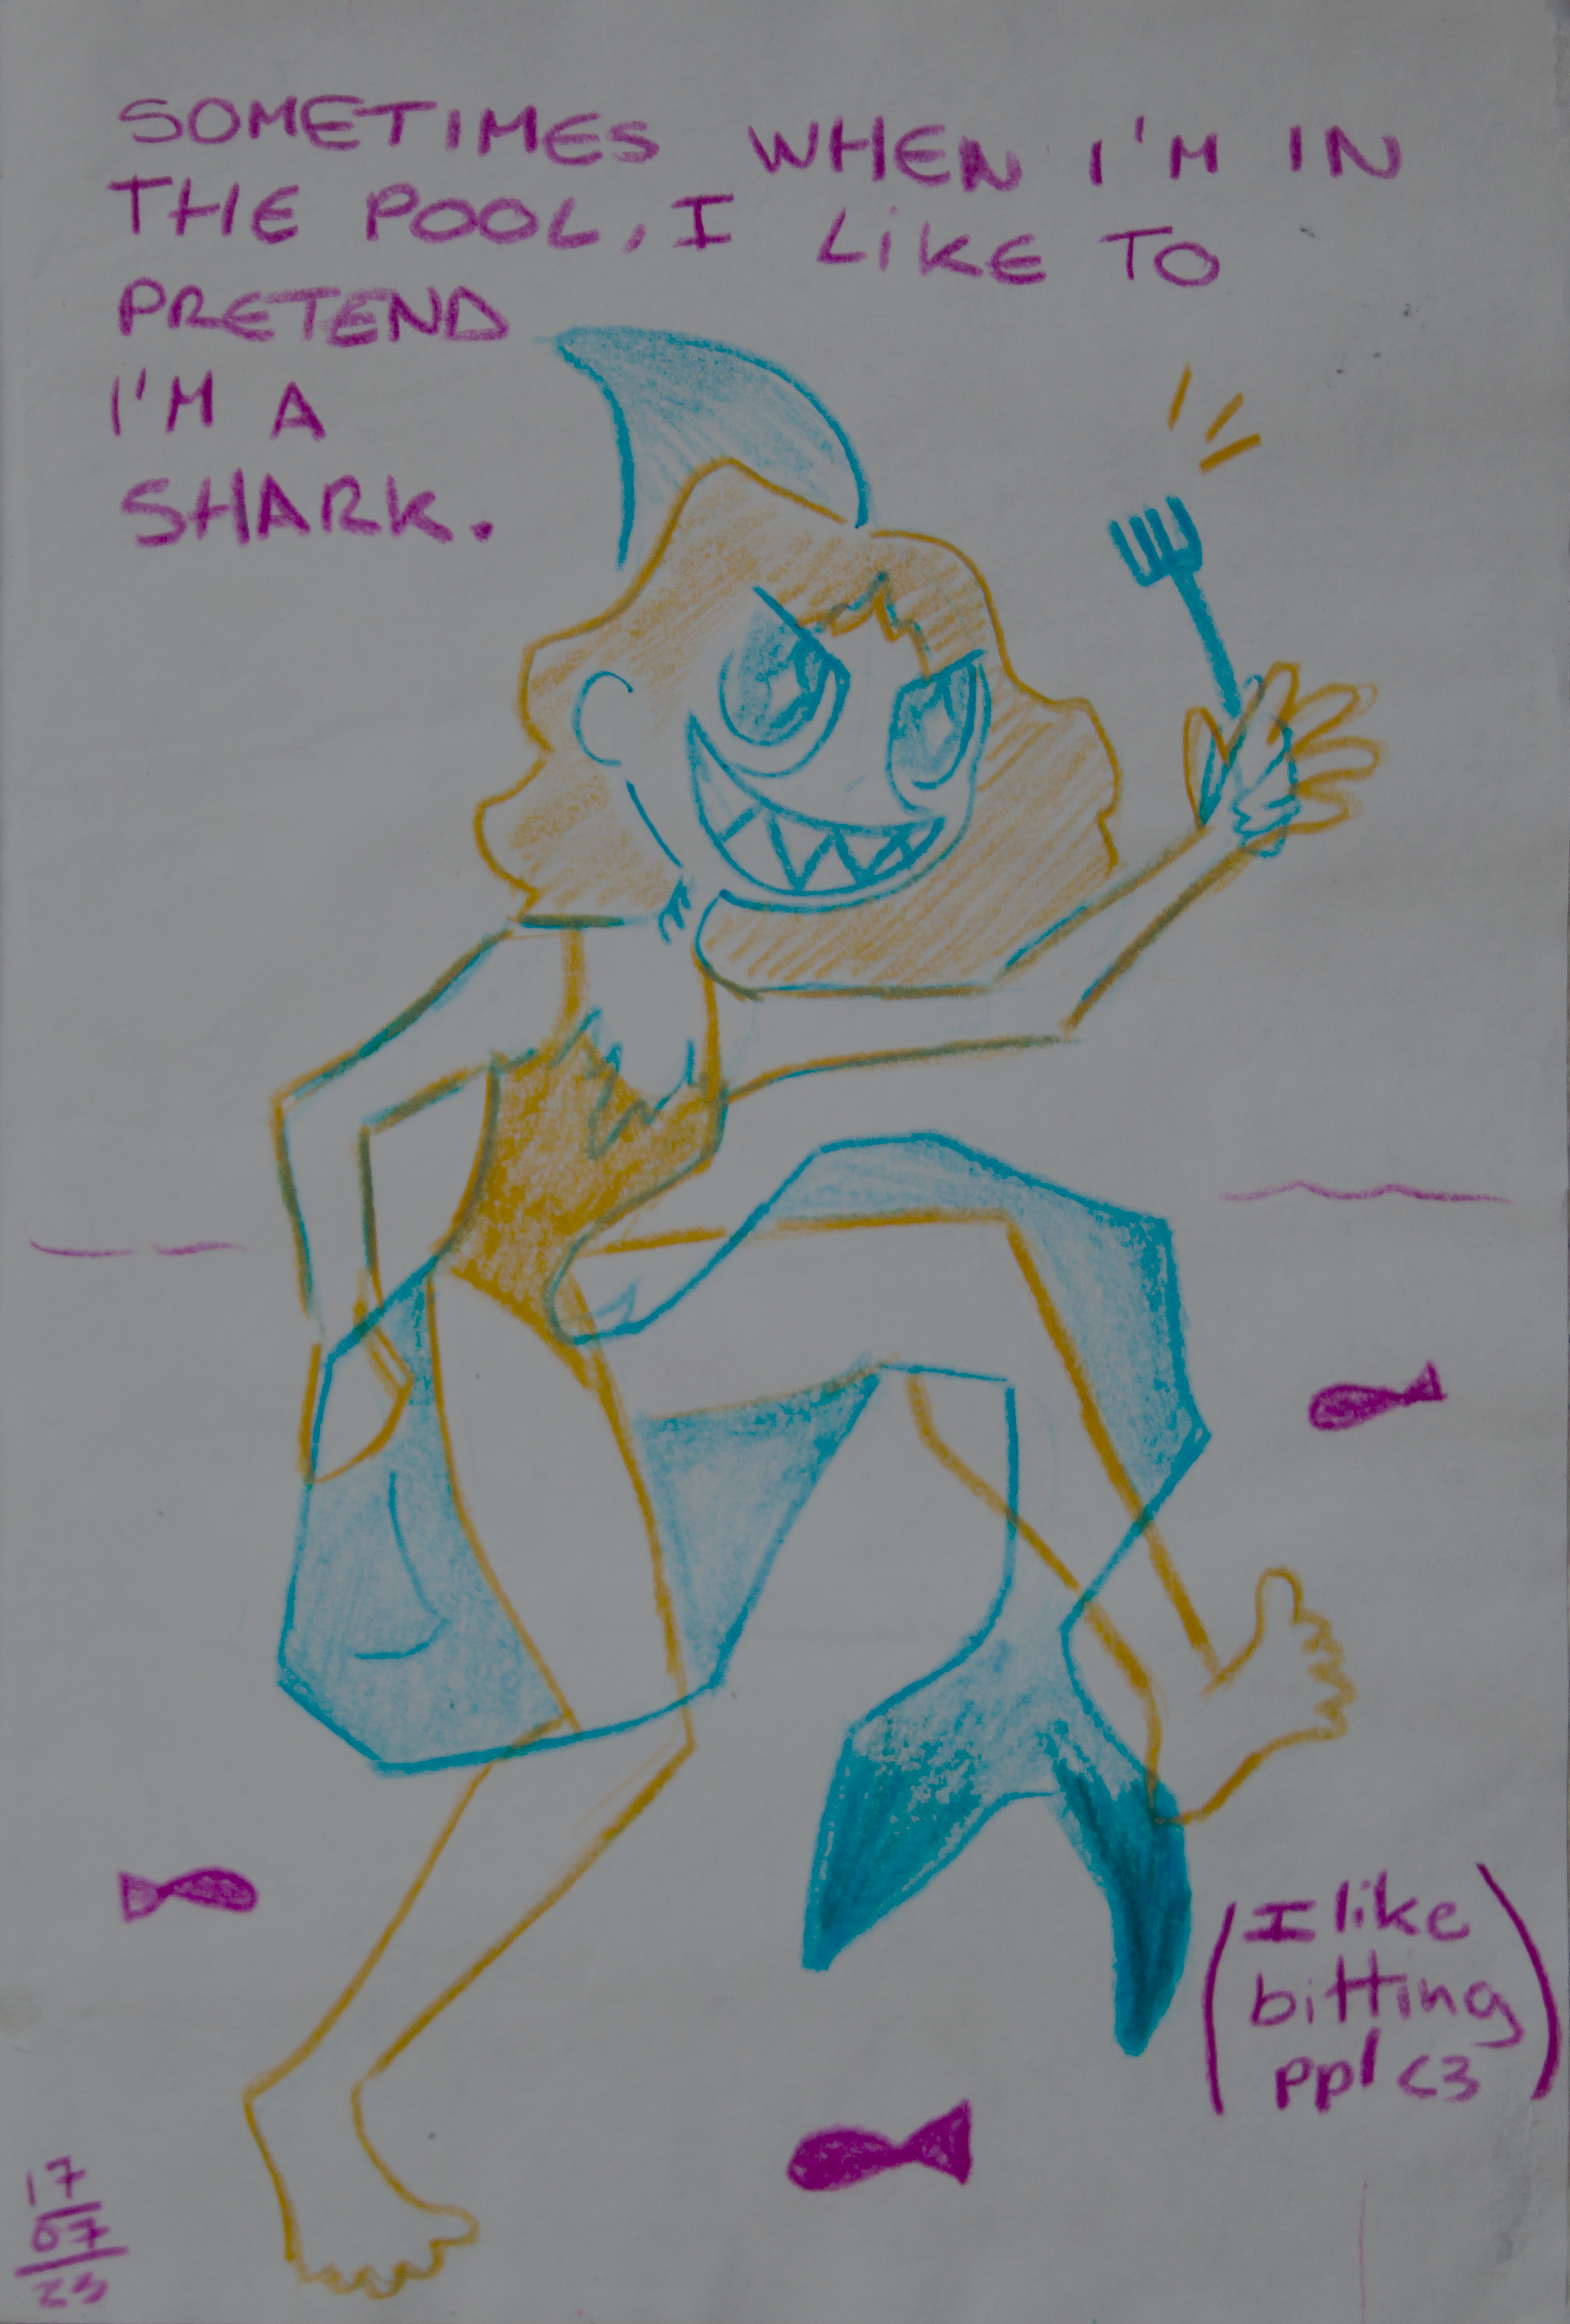 SOMETIMES WHEN I'M IN
THE POOL, I LiKE TO
PRETEND
I'M A
SHARK.
(I like
bitting
ppl <3)
17
07
23